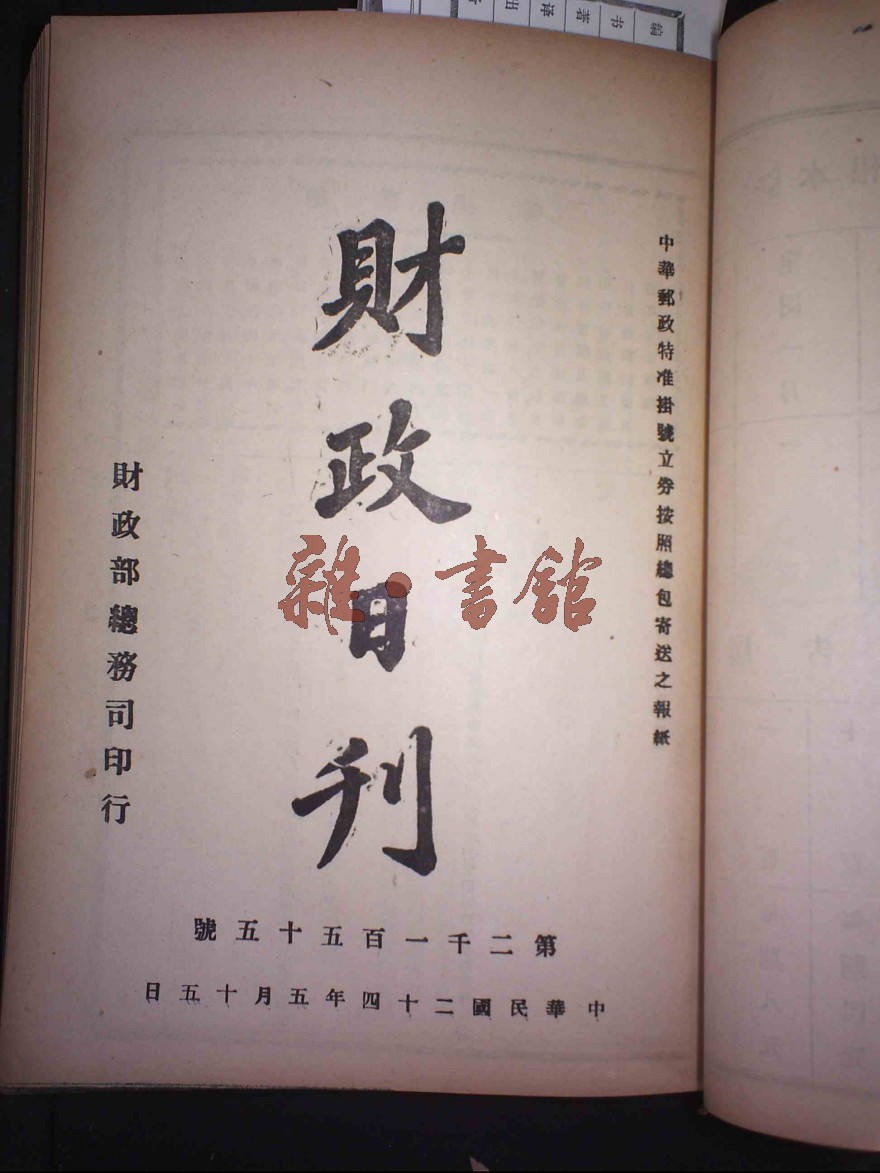 编书著译出
中華郵政特准掛號立券按照總包寄送之報紙
財政日刊
雜·書館
財政部總務司印行
第二千一百五十五號
中華民國二十四年五月十五日